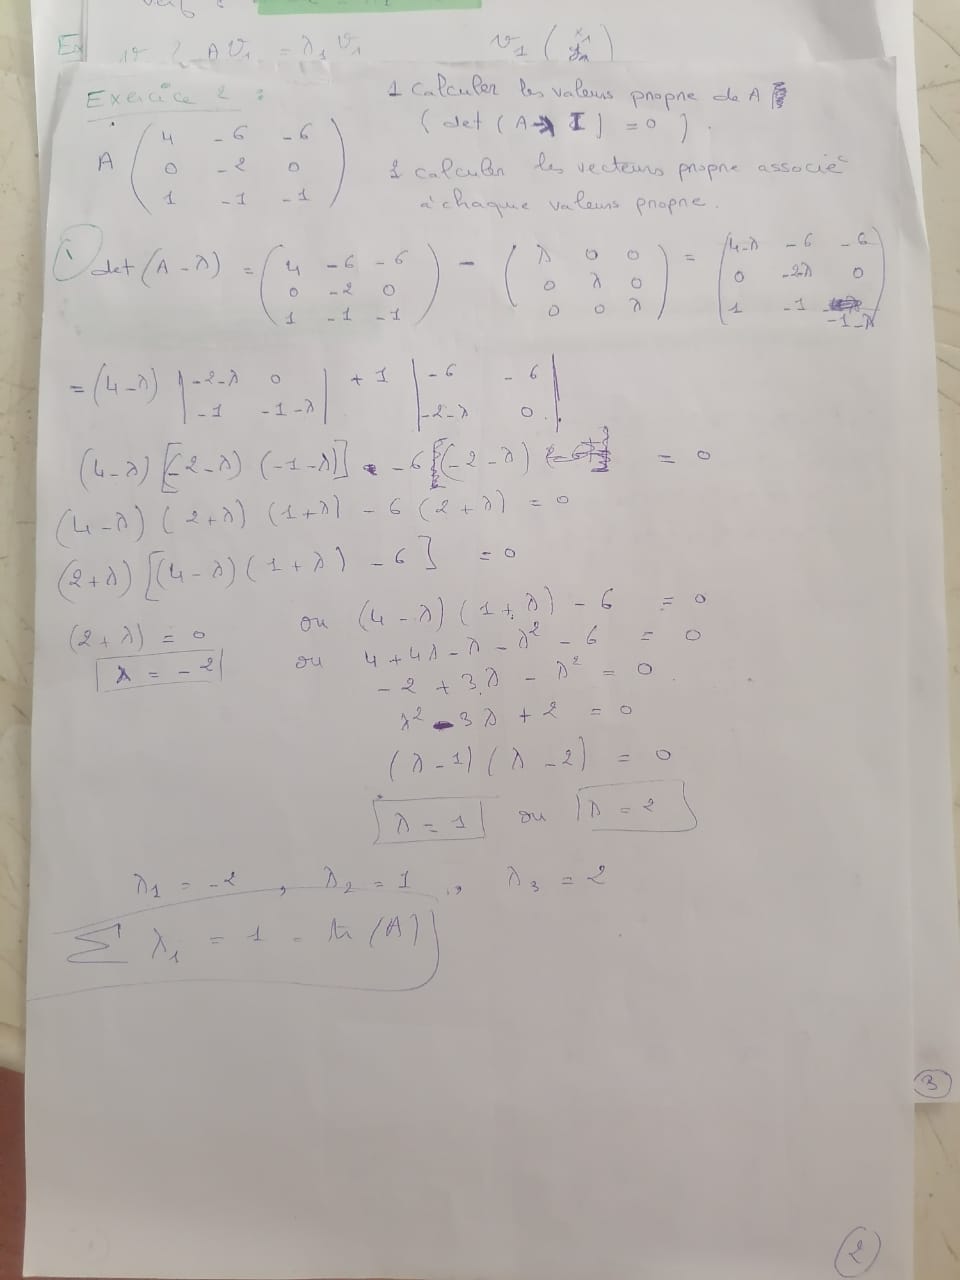 Ex
A v₁ = λ₁ v₁ v₁ ( x₁
Exercice 2 :
1 calculer les valeurs propre de A
( det ( A - λ I ) = 0 ) .
A ( 4 -6 -6
0 -2 0
1 -1 -1 )
2 calculer les vecteurs propre associé
à chaque valeurs propre .
1) det ( A - λ ) = ( 4 -6 -6 ; 0 -2 0 ; 1 -1 -1 ) - ( λ 0 0 ; 0 λ 0 ; 0 0 λ ) = ( 4-λ -6 -6 ; 0 -2λ 0 ; 1 -1 -1-λ )
= (4-λ) | -2-λ 0 ; -1 -1-λ | + 1 | -6 -6 ; -2-λ 0 . |
(4-λ) [(-2-λ) (-1-λ)] - 6 [(-2-λ) = 0
(4-λ) ( 2+λ) (1+λ) - 6 (2+λ) = 0
(2+λ) [(4-λ) (1+λ) - 6 ] = 0
(2+λ) = 0 ou (4-λ) (1+λ) - 6 = 0
λ = -2 ou 4+4λ-λ-λ² - 6 = 0
-2 + 3λ - λ² = 0
λ² - 3λ + 2 = 0
(λ-1) (λ-2) = 0
λ = 1 ou λ = 2
λ₁ = -2 , λ₂ = 1 , λ₃ = 2
Σ λ₁ = 1 = tr (A)
3
2